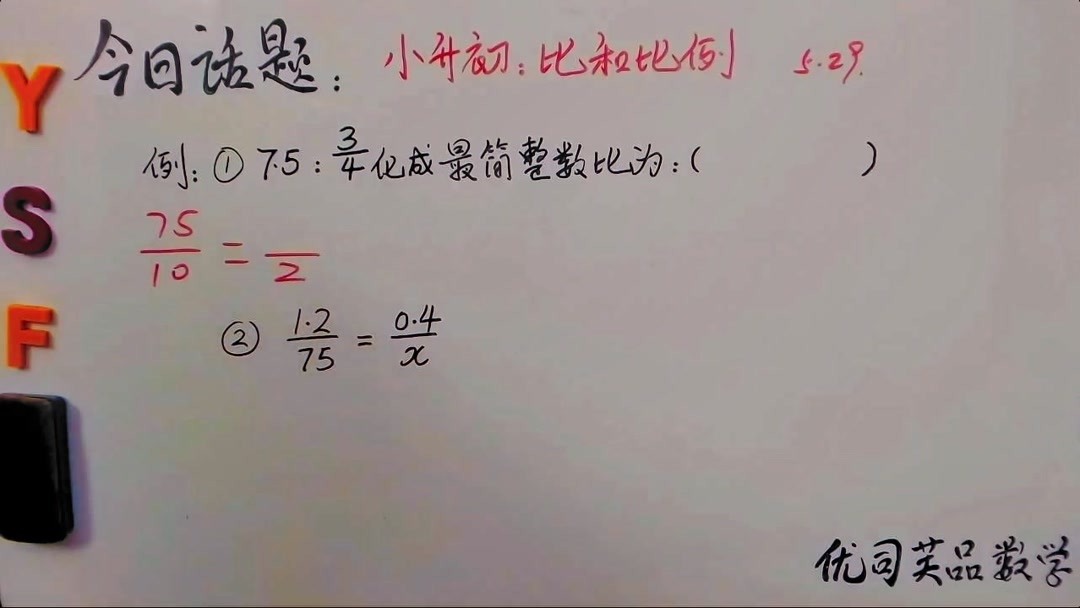 今日话题：小升初：比和比例 5.29.
例：① 7.5 : 3/4 化成最简整数比为：( )
75/10 = /2
② 1.2/75 = 0.4/x
Y
S
F
优司芙品数学